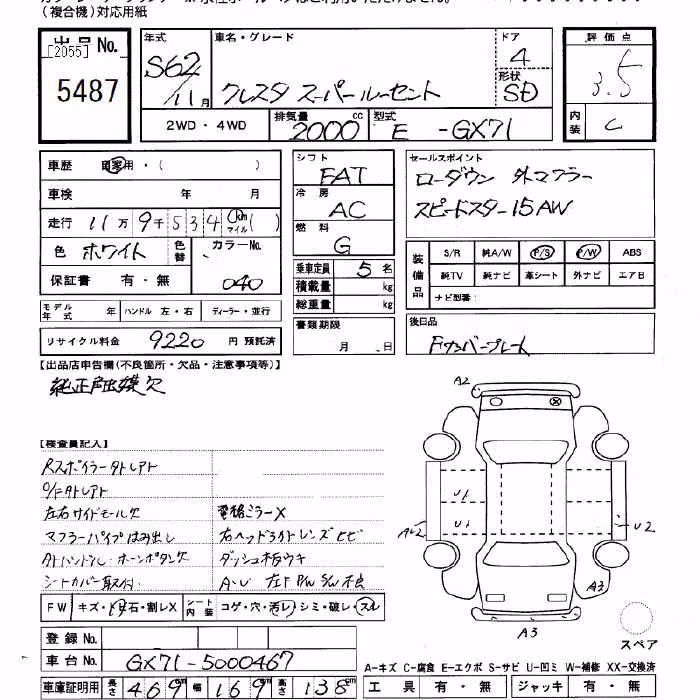 (複合機)対応用紙
出品No.
[2055]
5487
年式 車名・グレード ドア 評価点
S62/11月 クレスタ スーパールーセント 4 3.5
形状 SD
2WD・4WD 排気量 2000 cc 型式 E -GX71
内装 C
車歴 自家用・( )
車検 年 月
走行 11万9千534 km マイル( )
色 ホワイト 色替 カラーNo. 040
保証書 有・無
モデル年式 年 ハンドル 左・右 ディーラー・並行
リサイクル料金 9220 円 預託済
シフト FAT
冷房 AC
燃料 G
乗車定員 5 名
積載量 kg
総重量 kg
書類期限
月 日
セールスポイント
ローダウン 外マフラー
スピードスター15AW
装備品 S/R 純A/W P/S P/W ABS
純TV 純ナビ 革シート 外ナビ エアB
ナビ型番:
後日品
Fナンバープレート
【出品店申告欄(不良箇所・欠品・注意事項等)】
【検査員記入】
Rスポイラー
左右サイドモール欠 電格ミラーX
マフラーパイプはみ出し 右ヘッドライトレンズヒビ
ホーンボタン欠 ダッシュ板ウキ
シートカバー取付 A・U 左F P/W S/W不良
FW キズ・ト石・割レX シート内装 コゲ・穴・汚レ・シミ・破レ・スレ
登録No.
車台No. GX71-5000467
車庫証明用 長さ 469 cm 幅 169 cm 高さ 138 cm
A2
U1
U1
U2
A3
A3
スペア
A-キズ C-腐食 E-エクボ S-サビ U-凹ミ W-補修 XX-交換済
工具 有・無 ジャッキ 有・無